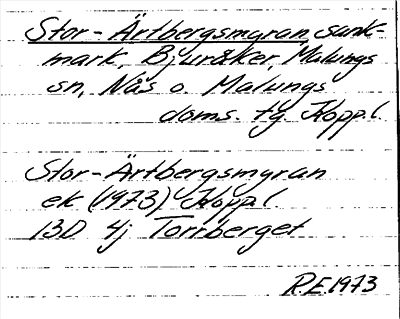 Stor-Ärtbergsmyran, sank-
mark, Bjuråker, Malungs
sn, Nås o. Malungs
doms. tg. Koppl.
Stor-Ärtbergsmyran
ek (1973) Koppl.
13D 4j Torrberget
R.E. 1973